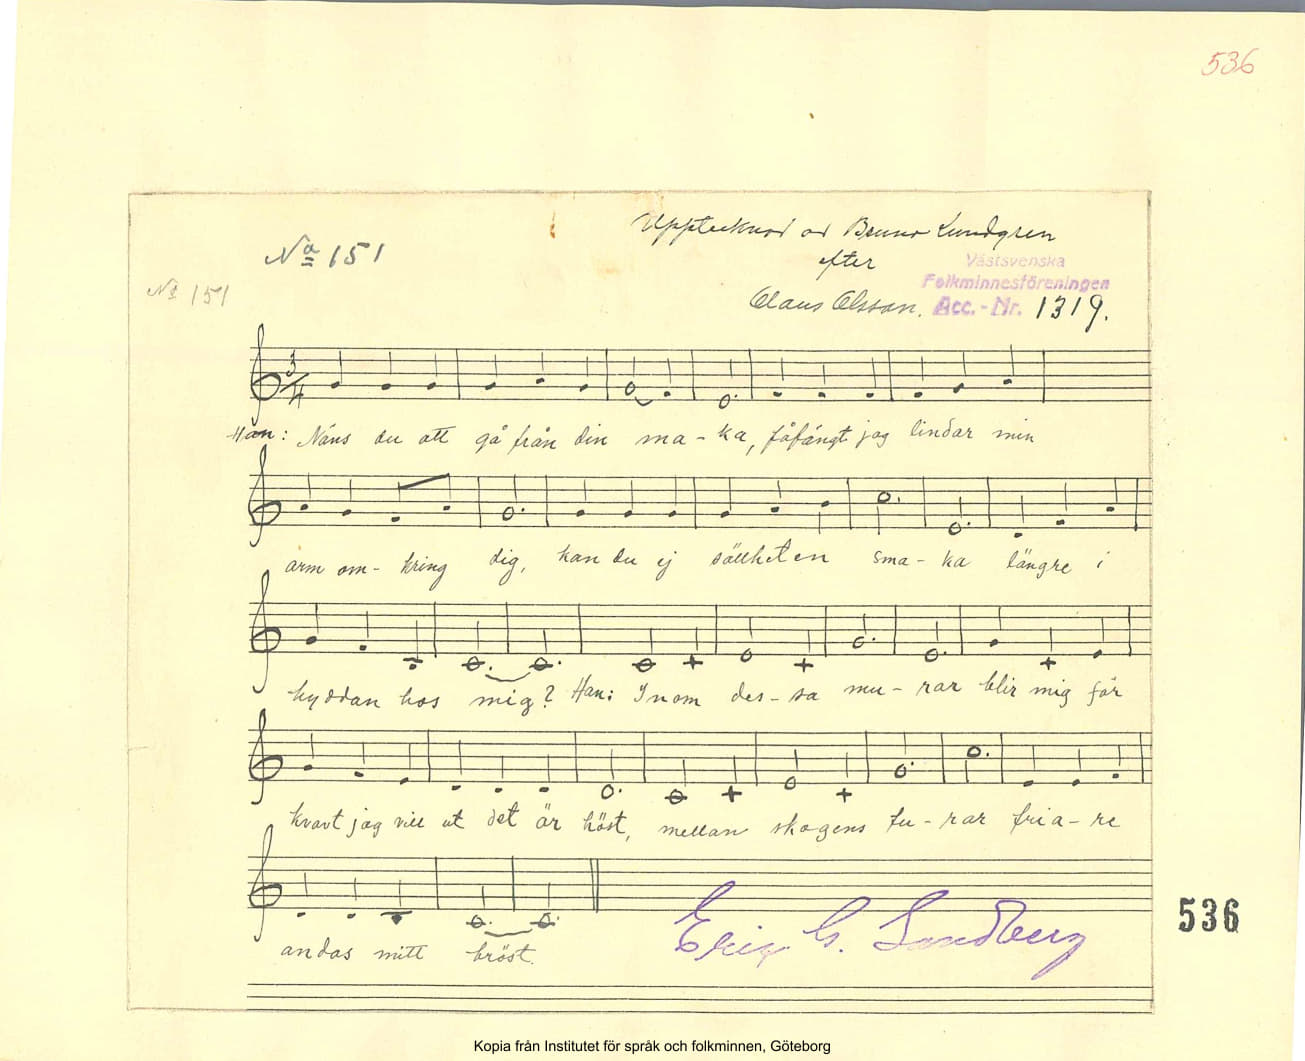 536
No 151
No 151
Upptecknad av Bruno Lundgren
efter
Claus Olsson.
Västsvenska
Folkminnesföreningen
Acc.-Nr. 1319.
3/4
Han: Näns du att gå från din ma-ka, fåfängt jag lindar min
arm om-kring dig, kan du ej sällheten sma-ka längre i
hyddan hos mig? Han: Inom des-sa mu-rar blir mig för
kvavt jag vill ut det är höst, mellan skogens fu-rar fria-re
andas mitt bröst.
Eric G. Sandberg
536
Kopia från Institutet för språk och folkminnen, Göteborg